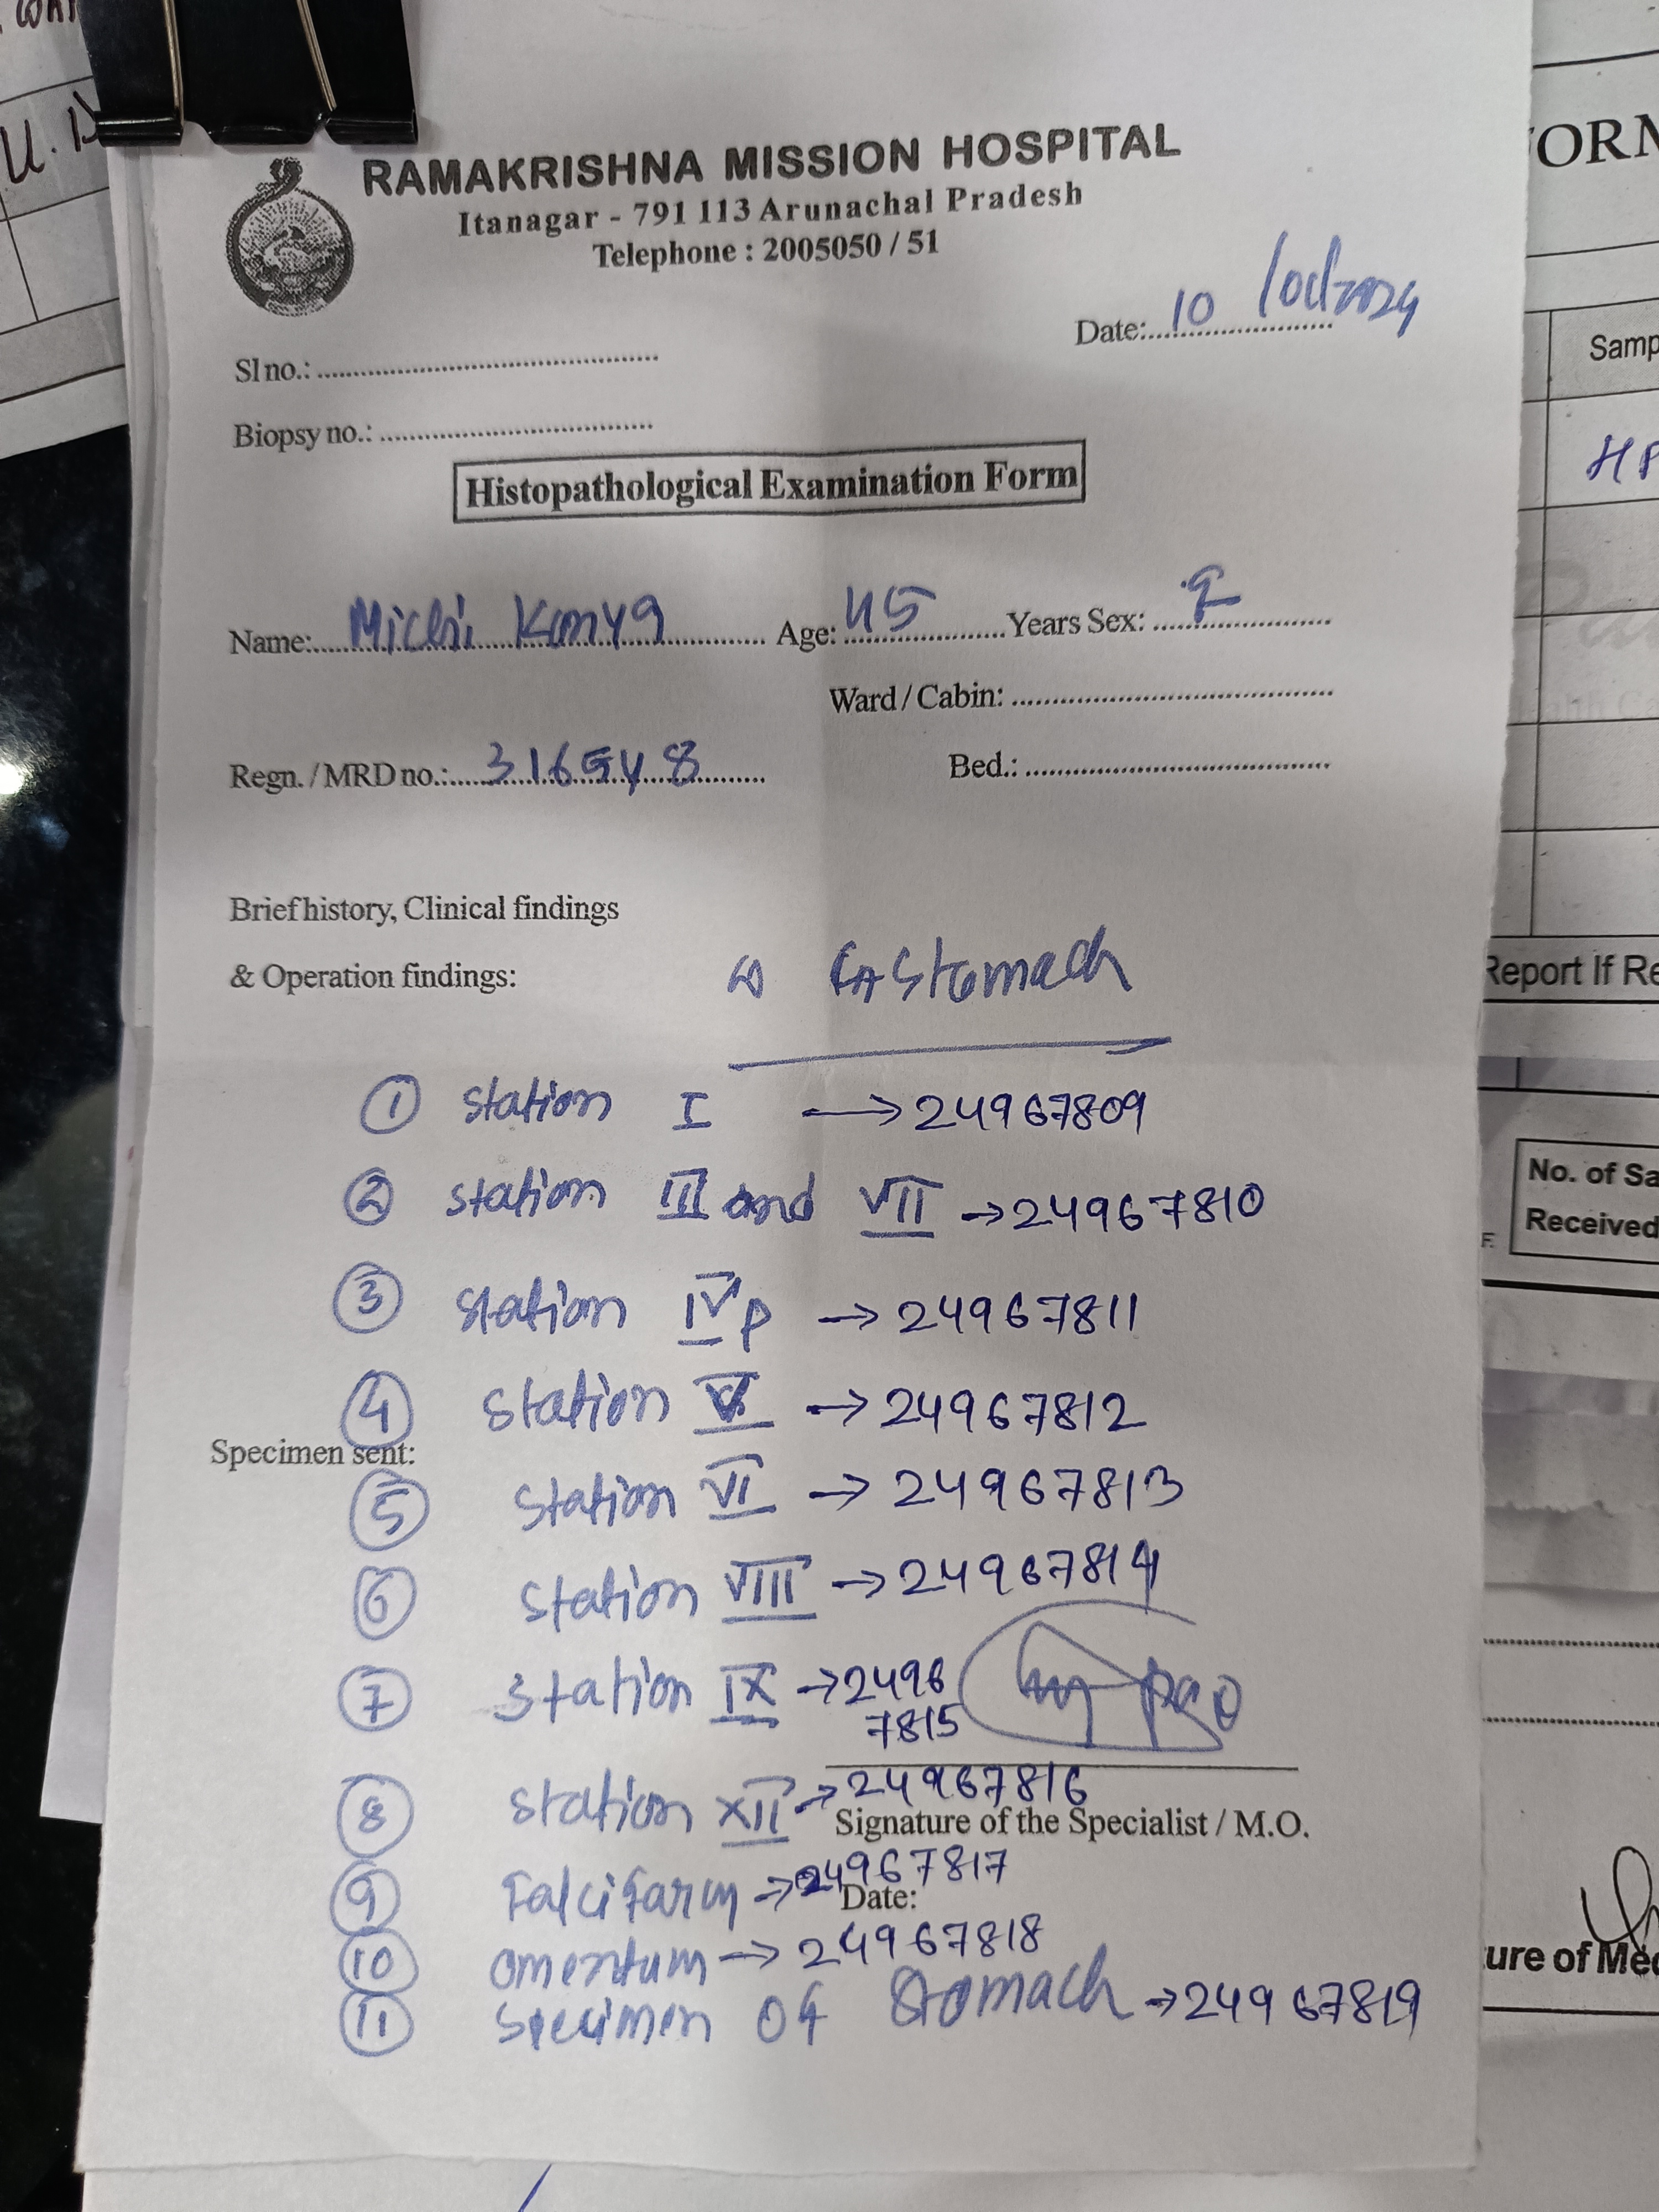 RAMAKRISHNA MISSION HOSPITAL
Itanagar - 791 113 Arunachal Pradesh
Telephone : 2005050 / 51
Date: 10 /Oct/2024
Sl no.:
Biopsy no.:
Histopathological Examination Form
Name: Michi Kanya Age: 45 Years Sex: ♀
Ward / Cabin:
Regn. / MRD no.: 316548
Bed.:
Brief history, Clinical findings
& Operation findings: CA Stomach
① Station I → 24967809
② Station III and VII → 24967810
③ Station IVp → 24967811
④ Station V → 24967812
Specimen sent:
⑤ Station VI → 24967813
⑥ Station VIII → 24967814
⑦ Station IX → 2496
7815
⑧ Station XII → 24967816
Signature of the Specialist / M.O.
⑨ Falcifarm → 24967817
Date:
⑩ omentum → 24967818
⑪ Specimen of Stomach → 24967819
U.
ORM
Samp
Report If Re
No. of Sa
Received
F.
ure of Med